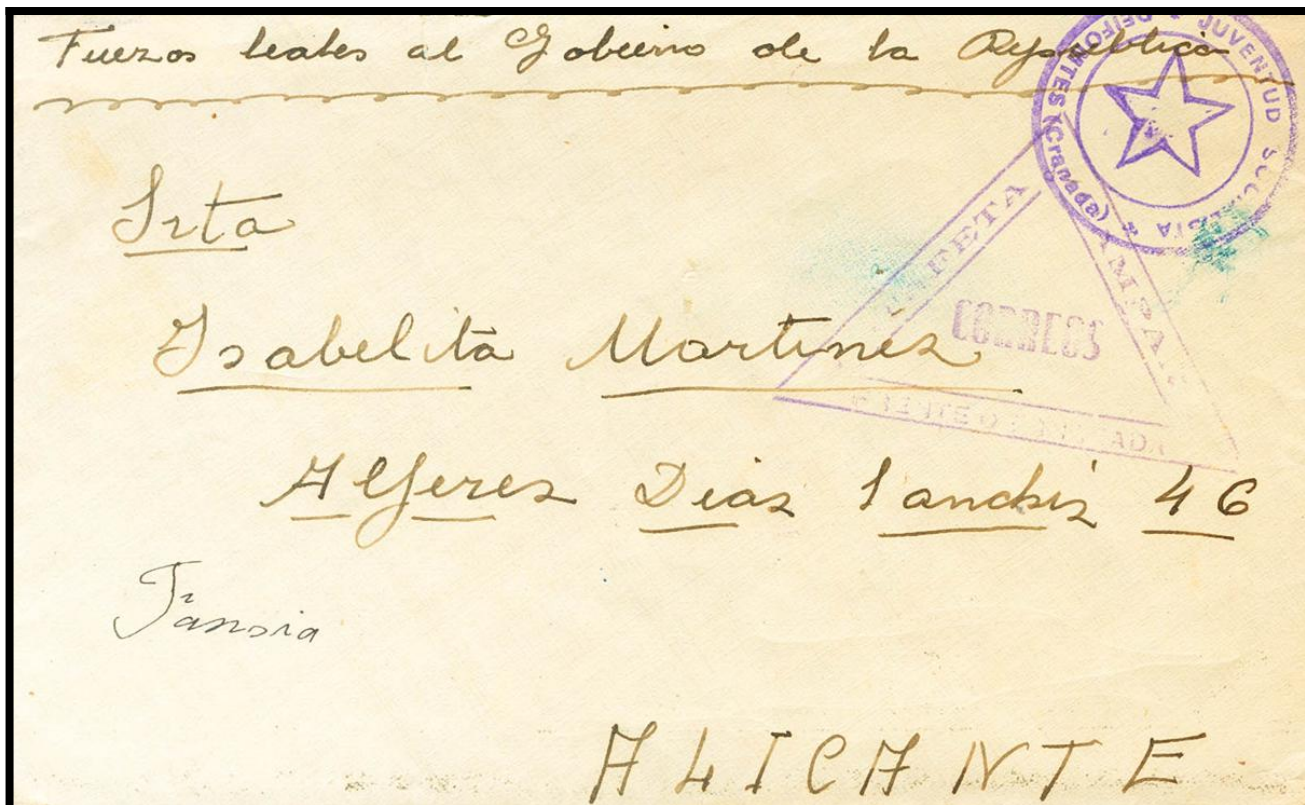 Fuerzas leales al Gobierno de la República
JUVENTUD SOCIALISTA
DEIFONTES (Granada)
Srta
CORREOS
Isabelita Martinez
Alferez Diaz Sanchiz 46
ALICANTE